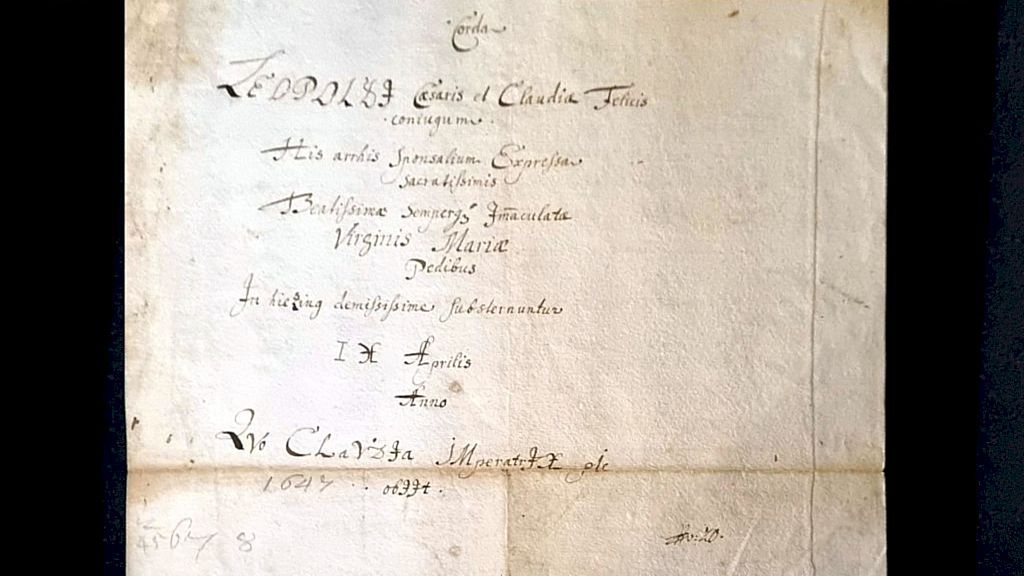 Corda
LEOPOLDI Cæsaris et Claudiæ Felicis
coniugum.
His arrhis Sponsalium Expressa
sacratißimis
Beatißimæ semperq̃ Im̃aculatæ
Virginis Mariæ
Pedibus
In hiezing demississime substernuntur
IX Aprilis
Anno
QVo CLaVDIa IMperatrIX pIe
1647 obIIt.
4567 8